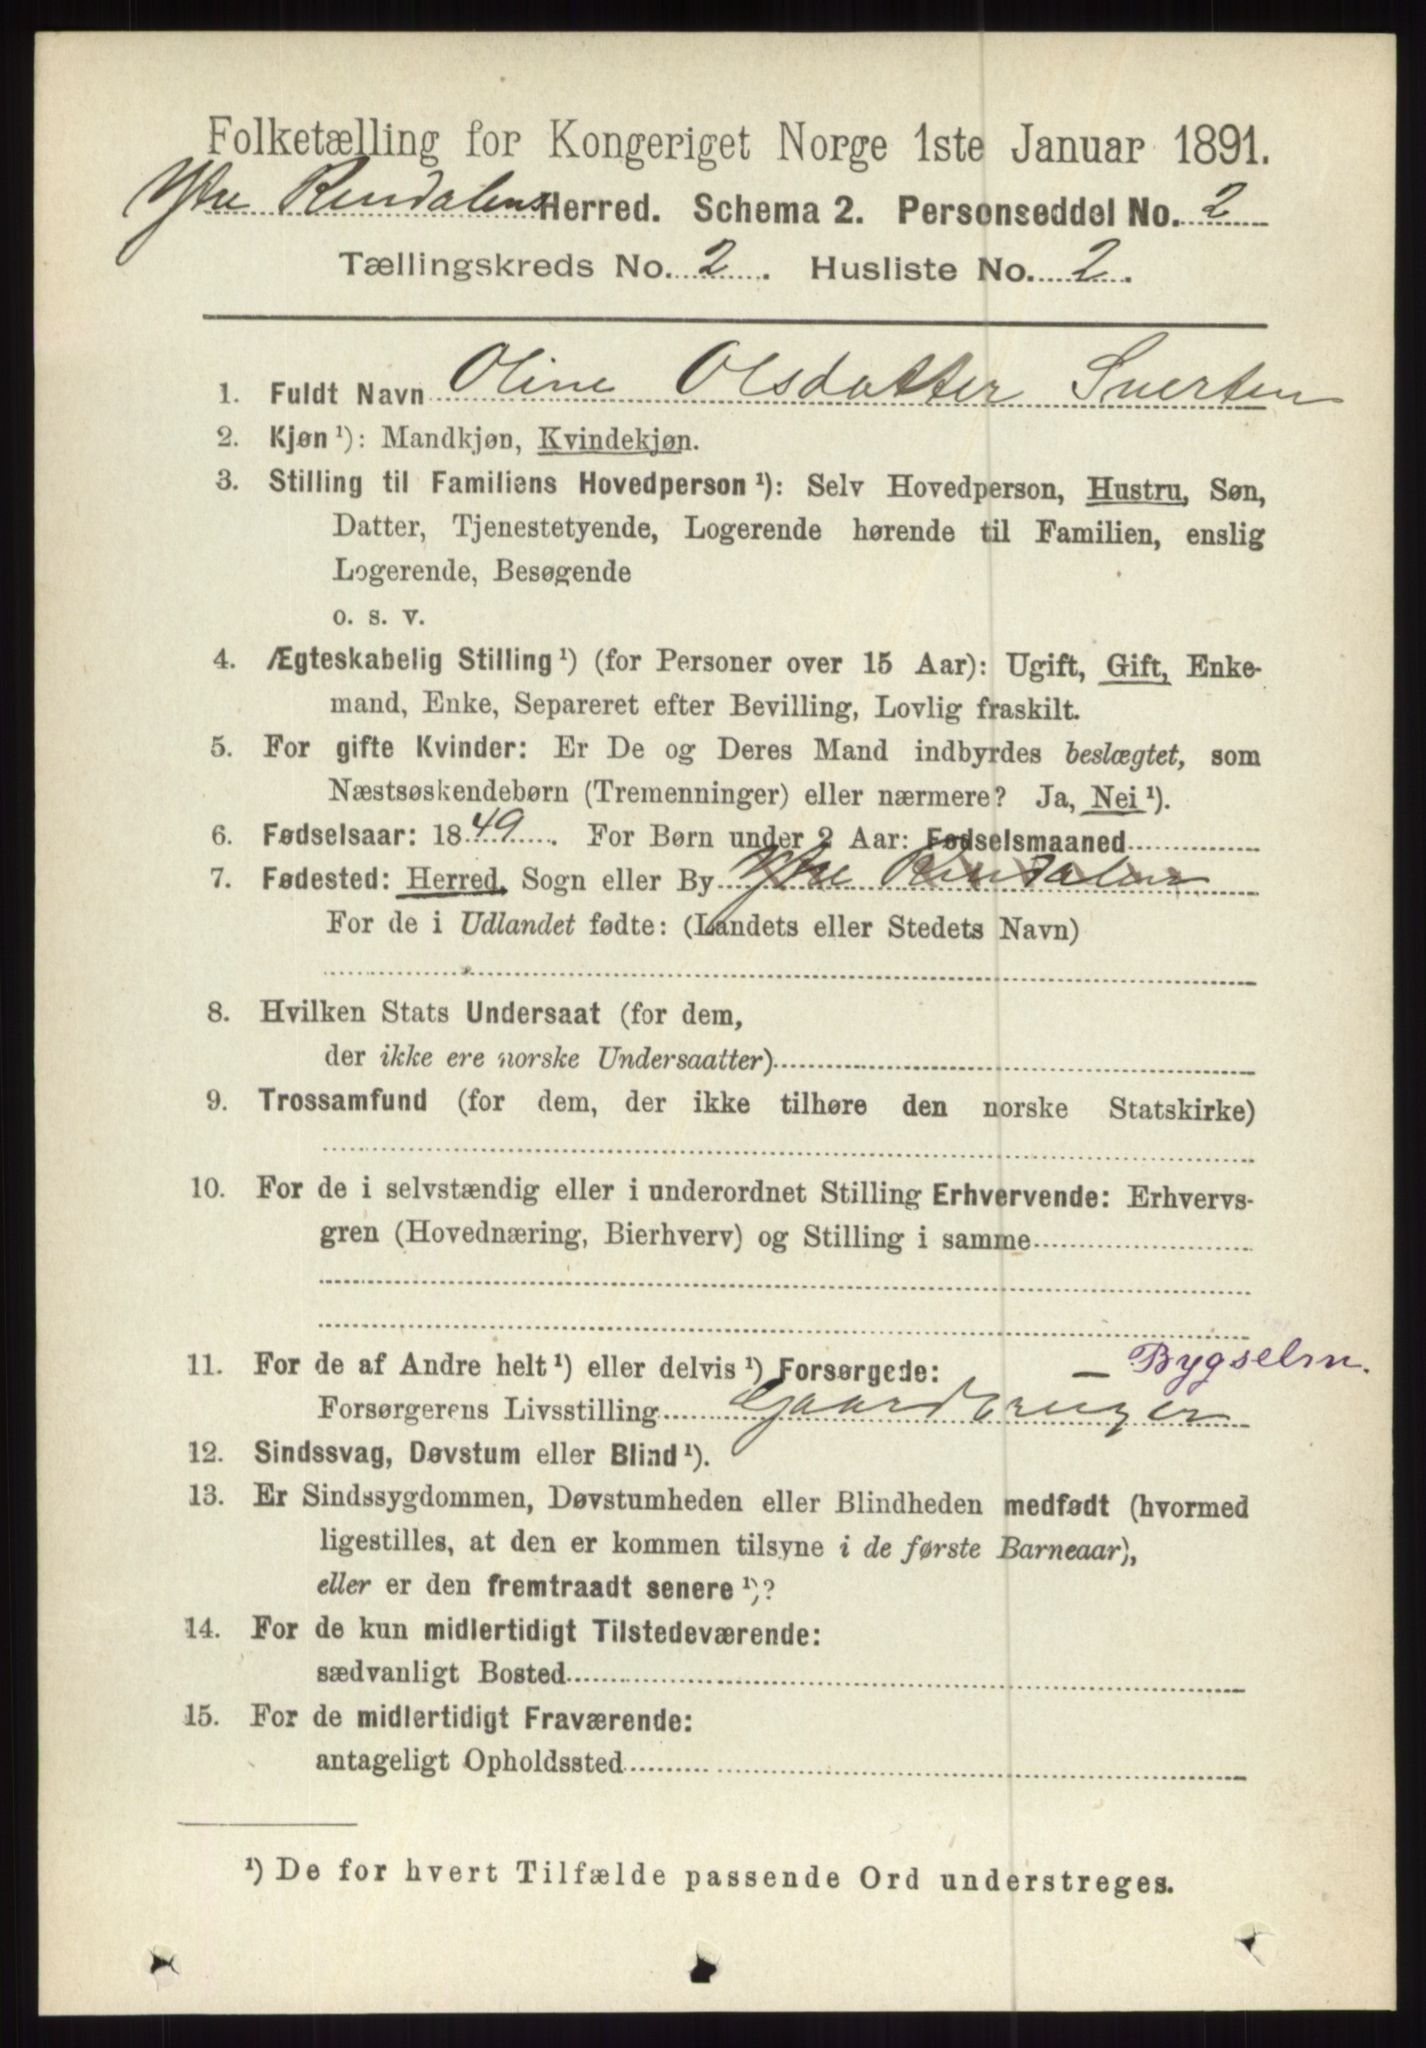 Folketælling for Kongeriget Norge 1ste Januar 1891.
Ytre Rendalens Herred. Schema 2. Personseddel No. 2
Tællingskreds No. 2. Husliste No. 2.
1. Fuldt Navn Oline Olsdatter Sverten
2. Kjøn ¹): Mandkjøn, Kvindekjøn.
3. Stilling til Familiens Hovedperson ¹): Selv Hovedperson, Hustru, Søn,
Datter, Tjenestetyende, Logerende hørende til Familien, enslig
Logerende, Besøgende
o. s. v.
4. Ægteskabelig Stilling ¹) (for Personer over 15 Aar): Ugift, Gift, Enke-
mand, Enke, Separeret efter Bevilling, Lovlig fraskilt.
5. For gifte Kvinder: Er De og Deres Mand indbyrdes beslægtet, som
Næstsøskendebørn (Tremenninger) eller nærmere? Ja, Nei ¹).
6. Fødselsaar: 1849. For Børn under 2 Aar: Fødselsmaaned
7. Fødested: Herred, Sogn eller By Ytre Rendalen
For de i Udlandet fødte: (Landets eller Stedets Navn)
8. Hvilken Stats Undersaat (for dem,
der ikke ere norske Undersaatter)
9. Trossamfund (for dem, der ikke tilhøre den norske Statskirke)
10. For de i selvstændig eller i underordnet Stilling Erhvervende: Erhvervs-
gren (Hovednæring, Bierhverv) og Stilling i samme
11. For de af Andre helt ¹) eller delvis ¹) Forsørgede: – Bygselm.
Forsørgerens Livsstilling Gaardbruger
12. Sindssvag, Døvstum eller Blind ¹).
13. Er Sindssygdommen, Døvstumheden eller Blindheden medfødt (hvormed
ligestilles, at den er kommen tilsyne i de første Barneaar),
eller er den fremtraadt senere ¹)?
14. For de kun midlertidigt Tilstedeværende:
sædvanligt Bosted
15. For de midlertidigt Fraværende:
antageligt Opholdssted
¹) De for hvert Tilfælde passende Ord understreges.